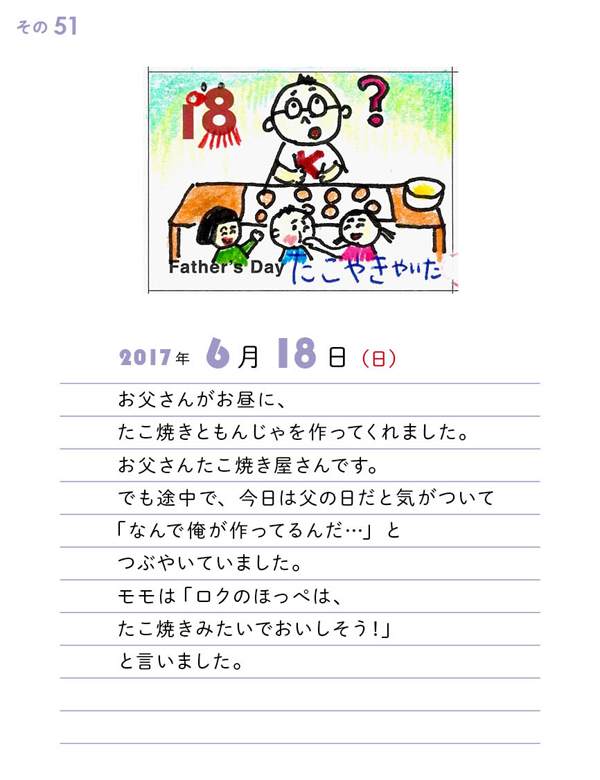 その 51
18
?
Father's Day たこやきやいた
2017年 6月 18日(日)
お父さんがお昼に、
たこ焼きともんじゃを作ってくれました。
お父さんたこ焼き屋さんです。
でも途中で、今日は父の日だと気がついて
「なんで俺が作ってるんだ…」と
つぶやいていました。
モモは「ロクのほっぺは、
たこ焼きみたいでおいしそう!」
と言いました。